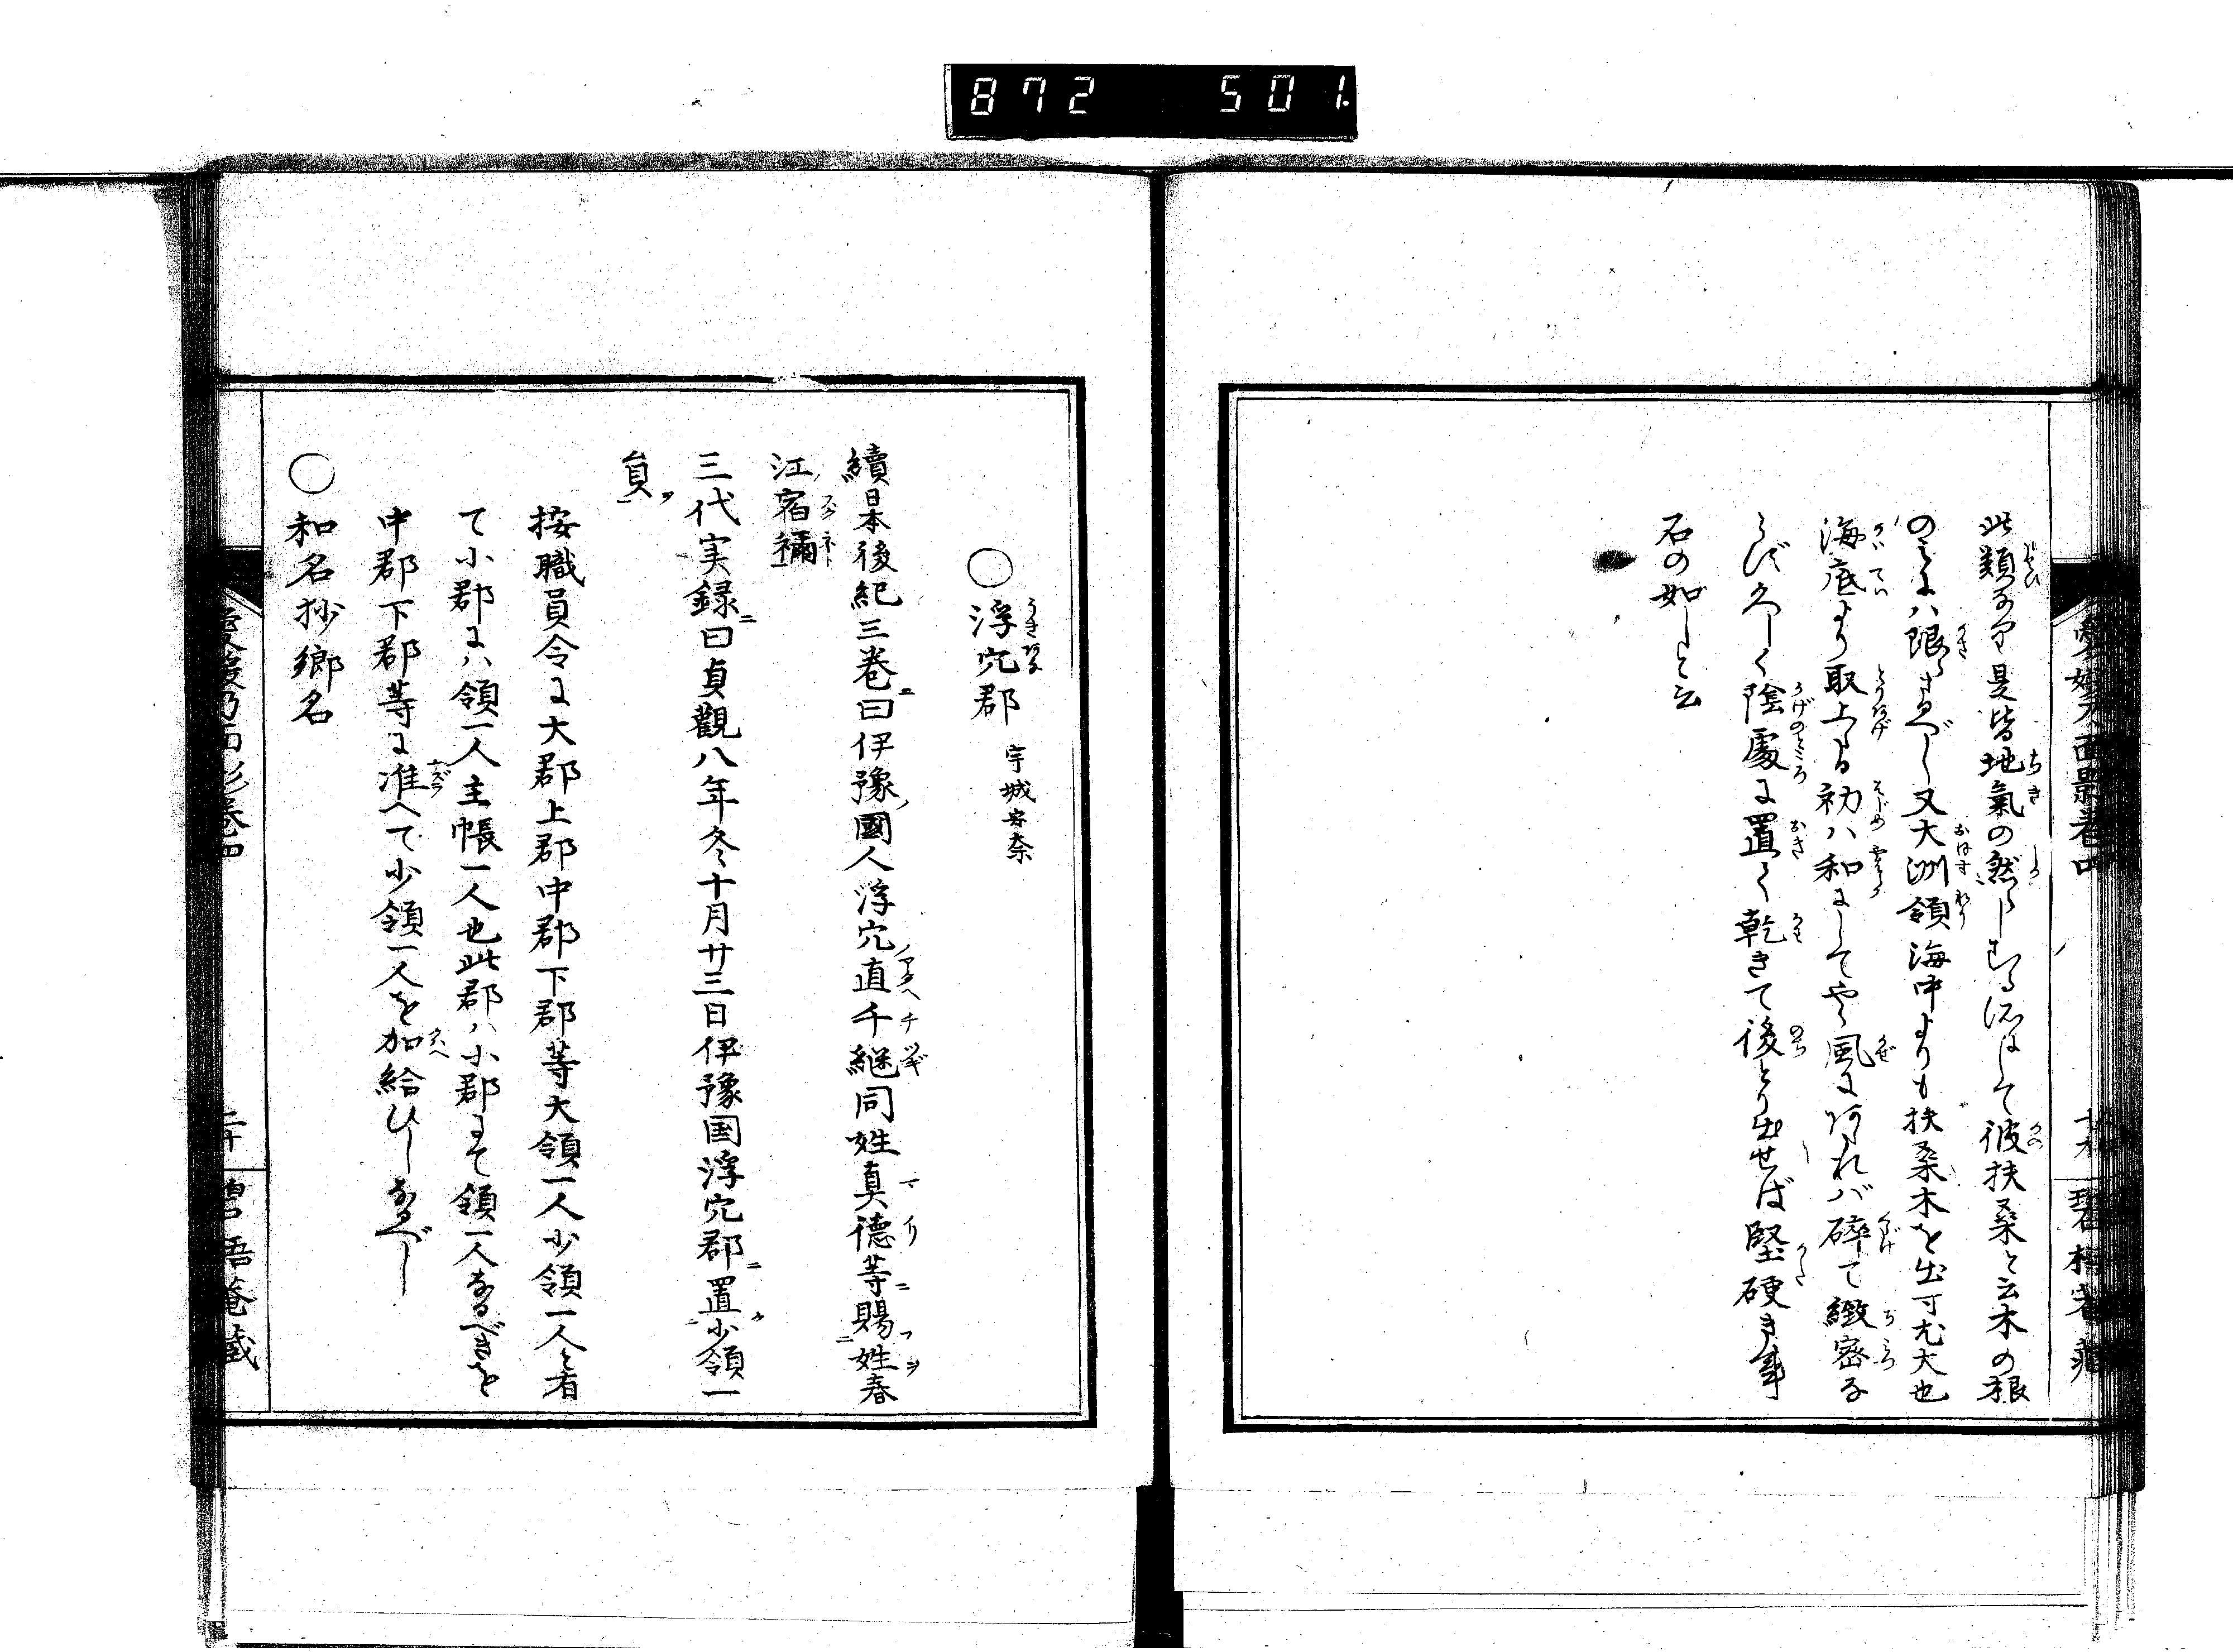 872 501
此類なり是皆地氣の然らしむる഼にして彼扶桑と云木の根
のみにハ限るまじ又大洲領海中よりも扶桑木を出す尤大也
海底より取上る初ハ和にしてやゝ風にあたれバ碎て緻密な
らず久しく陰處に置て乾きて後とり出せば堅硬き事
石の如しと云
○浮穴郡 宇城安奈
續日本後紀三巻ニ曰伊豫ノ國人浮穴直千継同姓真徳等ニ賜姓春
江宿禰
三代実録ニ曰貞觀八年冬十月廿三日伊豫国浮穴郡ニ置少領一
員ヲ
按職員令に大郡上郡中郡下郡等大領一人少領一人と有
て小郡にハ領一人主帳一人也此郡ハ小郡にて領一人なるべきを
中郡下郡等に准へて少領一人を加給ひしなるべし
○和名抄郷名